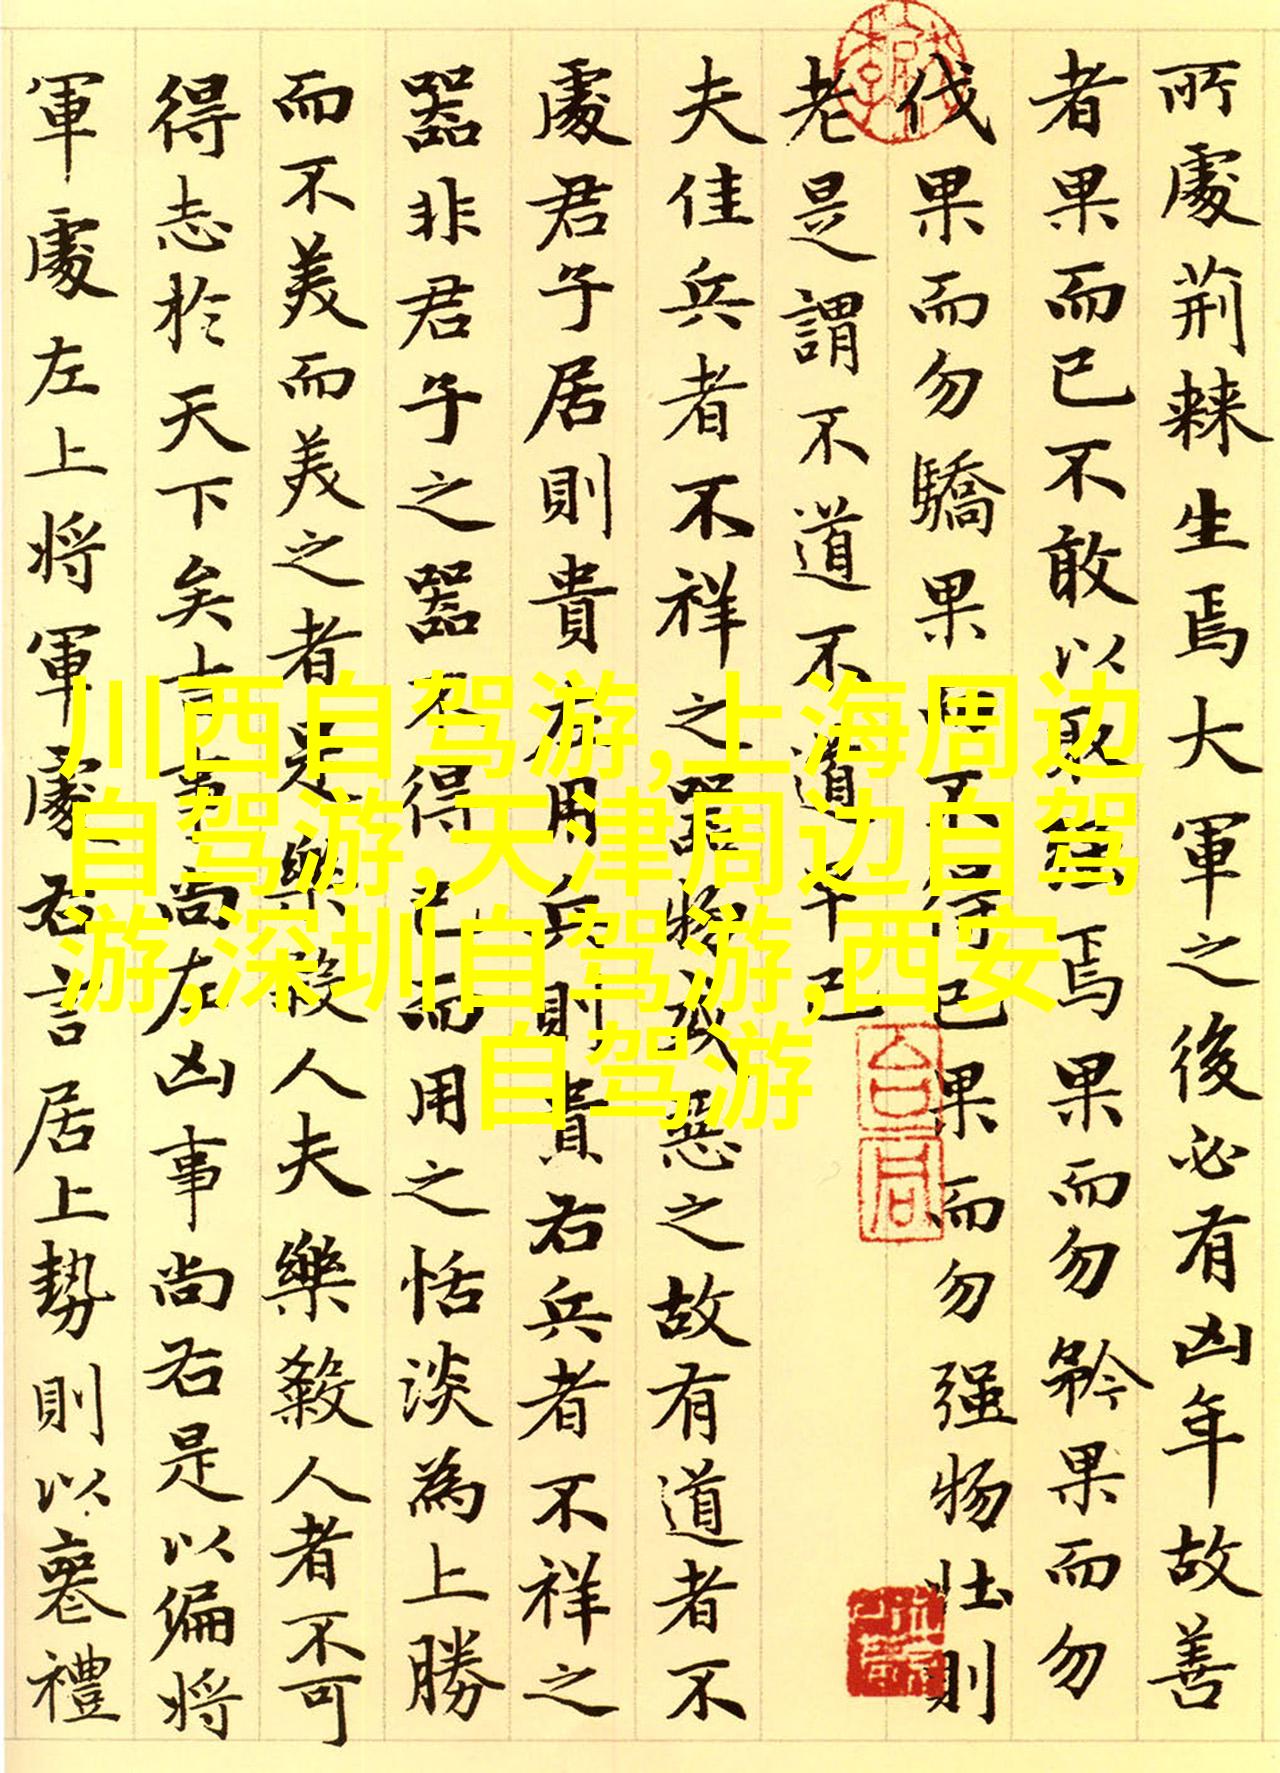 所處荊棘生焉大軍之後必有凶年故善
者果而已不敢以取焉果而勿矜果而勿
伐果而勿驕果而不得已果而勿强物壯則
老是謂不道不道早已
夫佳兵者不祥之器物或惡之故有道者不
處君子居則貴左用兵則貴右兵者不祥之
器非君子之器不得已而用之恬淡為上勝
而不美而美之者是樂殺人夫樂殺人者不可
得志於天下矣吉事尚左凶事尚右是以偏將
軍處左上將軍處右言居上勢則以喪禮
川西自驾游,上海周边
自驾游,天津周边自驾
游,深圳自驾游,西安
自驾游